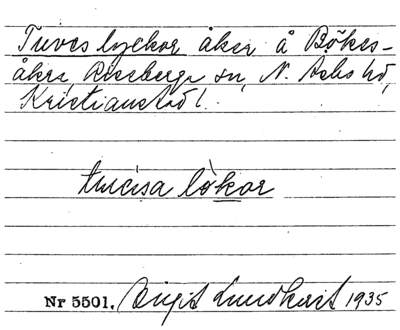 Tuves lyckor åker å Bökes-
åkra, Riseberga sn, N. Åsbo hd,
Kristianstad l.
tuvəsa lòkor
Nr 5501. Birgit Lundkvist 1935